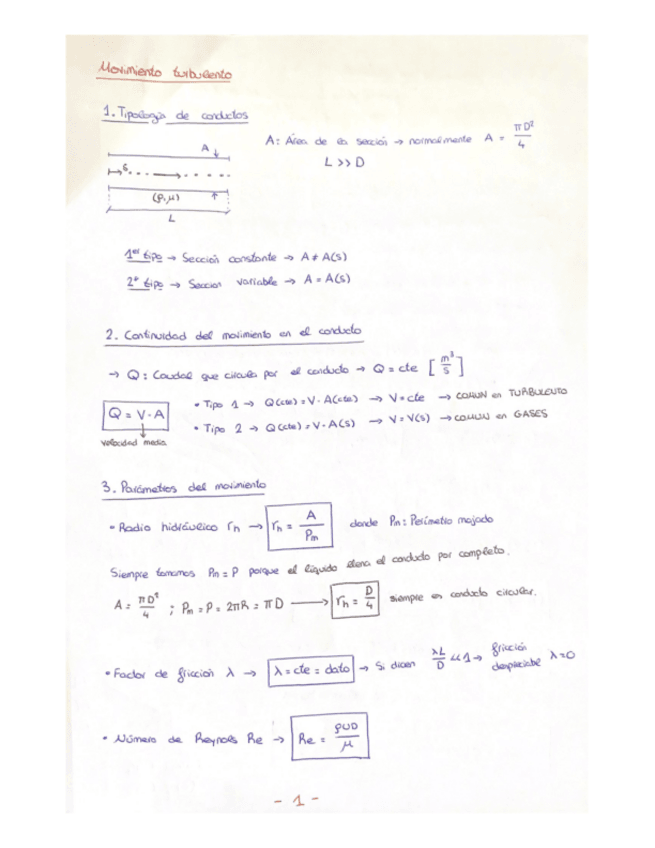 Movimiento turbulento
1. Tipología de conductos
A: Área de la sección → normalmente A = πD²/4
L >> D
A
s
(ρ,μ)
L
1er tipo → Sección constante → A ≠ A(s)
2º tipo → Seccion variable → A = A(s)
2. Continuidad del movimiento en el conducto
→ Q: Caudal que circula por el conducto → Q = cte [m³/s]
Q = V · A
velocidad media
• Tipo 1 → Q(cte) = V · A(cte) → V = cte → COMUN en TURBULENTO
• Tipo 2 → Q(cte) = V · A(s) → V = V(s) → COMUN en GASES
3. Parámetros del movimiento
• Radio hidráulico rh → rh = A/Pm donde Pm: Perímetro mojado
Siempre tomamos Pm = P porque el líquido llena el conducto por completo.
A = πD²/4 ; Pm = P = 2πR = πD → rh = D/4 siempre en conducto circular.
• Factor de fricción λ → λ = cte = dato → Si dicen λL/D << 1 → fricción despreciable λ = 0
• Número de Reynols Re → Re = ρUD/μ
- 1 -